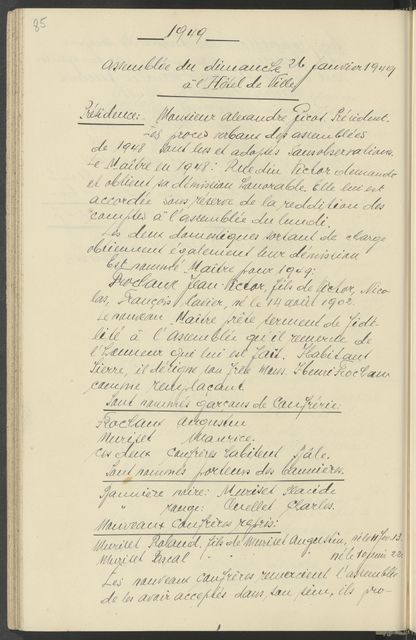 85
1949
Assemblée du dimanche 26 janvier 1949
à l'Hôtel de Ville
Présidence: Monsieur Alexandre Gicot, Président.
Les procès verbaux des assemblées
de 1948 sont lus et adoptés sans observations.
Le Maître en 1948: Ruedin Victor demande
et obtient sa démission honorable. Elle lui est
accordée sous réserve de la reddition des
comptes à l'assemblée du lundi.
Les deux domestiques sortant de charge
obtiennent également leur démission
Est nommé Maître pour 1949:
Frochaux Jean-Victor, fils de Victor, Nico-
las, François Xavier, né le 14 août 1902.
Le nouveau Maître prête serment de fidé-
lité à l'Assemblée qu'il remercie de
l'honneur qui lui est fait. Habitant
Pierre, il désigne son frère Mons. Henri Frochaux
comme remplaçant
Sont nommés garçons de Confrérie:
Frochaux Augustin
Muriset Maurice.
Ces deux confrères habitent Bâle.
Sont nommés porteurs des bannières.
Bannière noire: Muriset Claude
" rouge: Quellet Charles.
Nouveaux Confrères reçus:
Muriset Roland, fils de Muriset Augustin, né le 11 fév. 13
Muriset Pascal " " né le 10 juin 22
Les nouveaux confrères remercient l'assemblée
de les avoir acceptés dans son sein, ils pro-